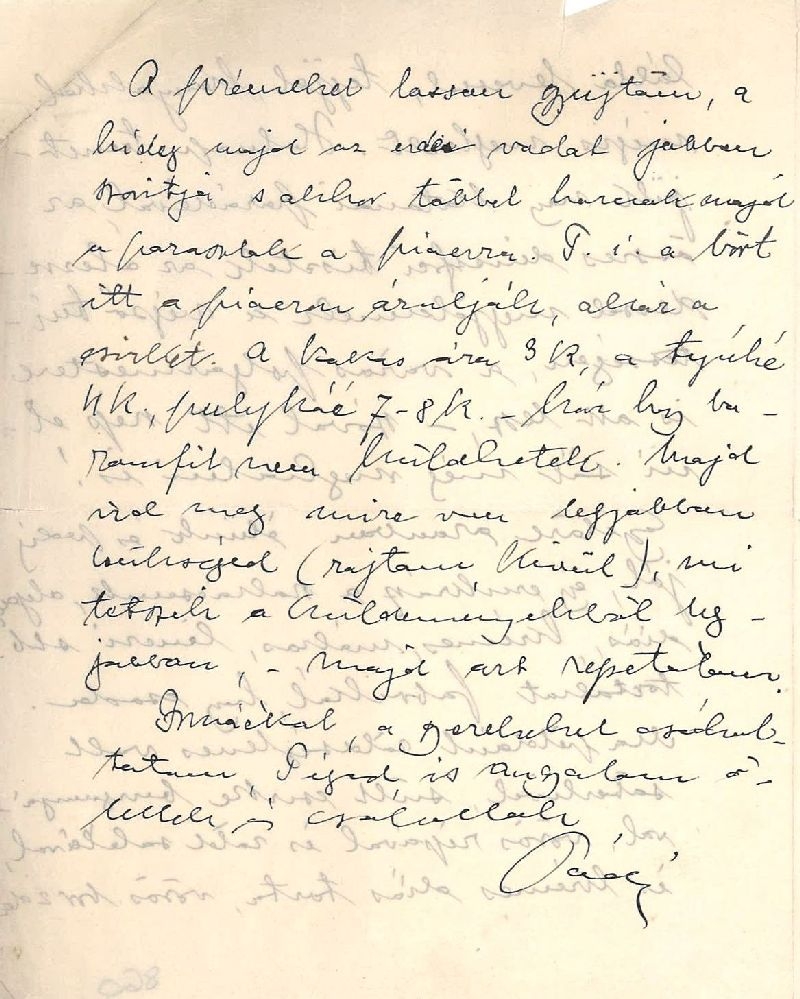 A prémeket lassan gyüjtöm, a
hideg majd az erdei vadat jobban
szoritja s akkor többet hoznak majd
a parasztok a piacra. T. i. a bőrt
itt a piacon árulják, akár a
csirkét. A kakas ára 3 K, a tyúké
4 K., pulykáé 7-8 K. - Kár hogy ba-
romfit nem küldhetek. Majd
ird meg mire van legjobban
szükséged (rajtam kivül), mi
tetszik a küldeményekből leg-
jobban, - majd azt repetálom.
a gyerekeket csókol-
tatom, Téged is angyalom ö-
lellek és csókollak